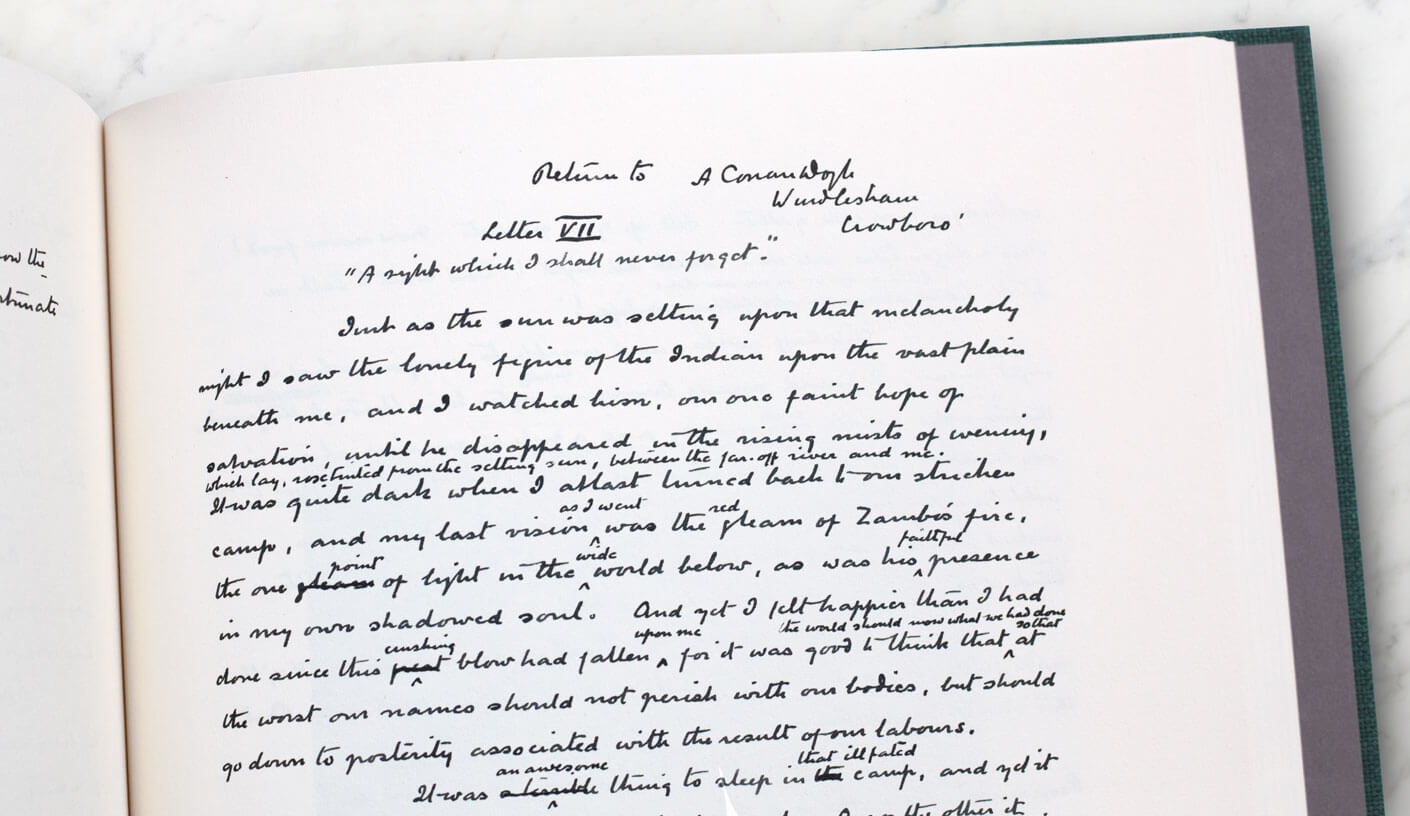 ow the
rtunate
Return to A Conan Doyle
Windlesham
Crowboro'
Letter VII
"A sight which I shall never forget".
Just as the sun was setting upon that melancholy
night I saw the lonely figure of the Indian upon the vast plain
beneath me, and I watched him, our one faint hope of
salvation, until he disappeared in the rising mists of evening,
which lay, rose tinted from the setting sun, between the far-off river and me.
It was quite dark when I at last turned back to our stricken
camp, and my last vision as I went was the red gleam of Zambo's fire,
the one gleam point of light in the wide world below, as was his faithful presence
in my own shadowed soul. And yet I felt happier than I had
done since this great crushing blow had fallen upon me, for it was good to think that the world should now what we had done so that at
the worst our names should not perish with our bodies, but should
go down to posterity associated with the result of our labours.
It was a terrible an awesome thing to sleep in the that ill fated camp, and yet it
the other it